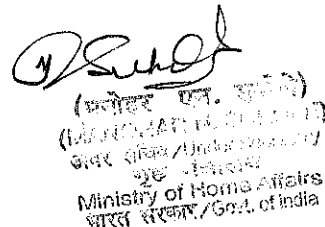 (मनोहर एन.
(MANOHAR N.
अवर सचिव/Under Secretary
गृह मंत्रालय
Ministry of Home Affairs
भारत सरकार/Govt. of India